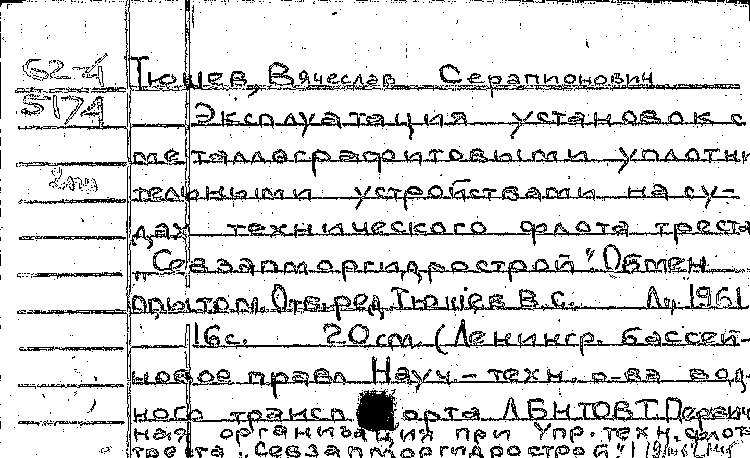 62-4 Тюшев, Вячеслав Серапионович
5174 Эксплуатация установок с
металлографитовыми уплотни
2 тельными устройствами на су-
дах технического флота треста
"Севзапморгидрострой". Обмен
опытом. Отв. ред. Тюшев В.С. Л., 1961
16с. 20см. (Ленингр. бассей-
новое правл Науч-техн. о-ва вод-
ного трансп орта ЛБНТОВТ. Первич
ная организация при Упр. техн. флота
треста "Севзапморгидрострой")